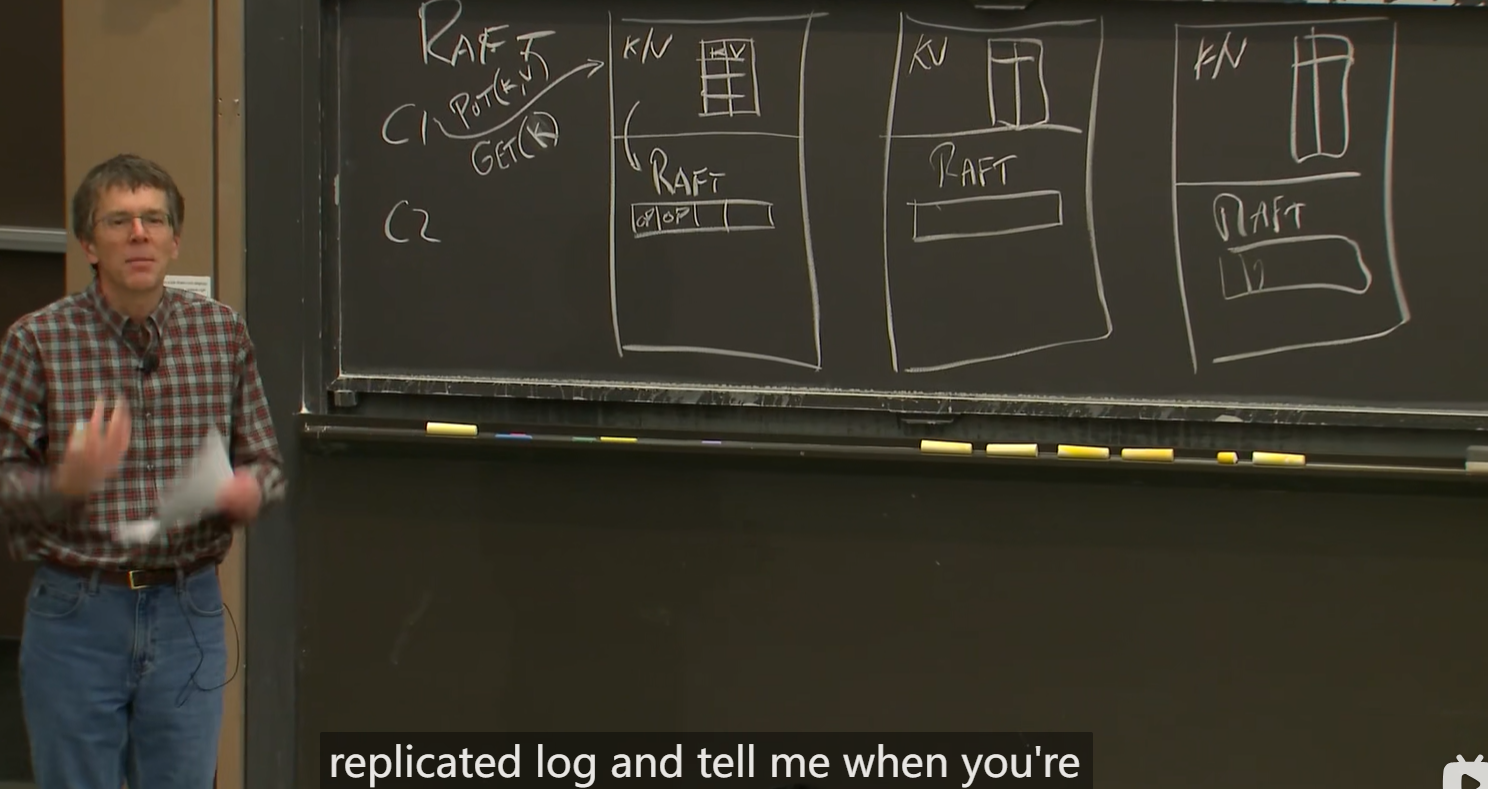 RAFT
C1
PUT(K,V)
GET(K)
C2
K/V
K V
RAFT
OP OP
KV
RAFT
K/V
RAFT
replicated log and tell me when you're